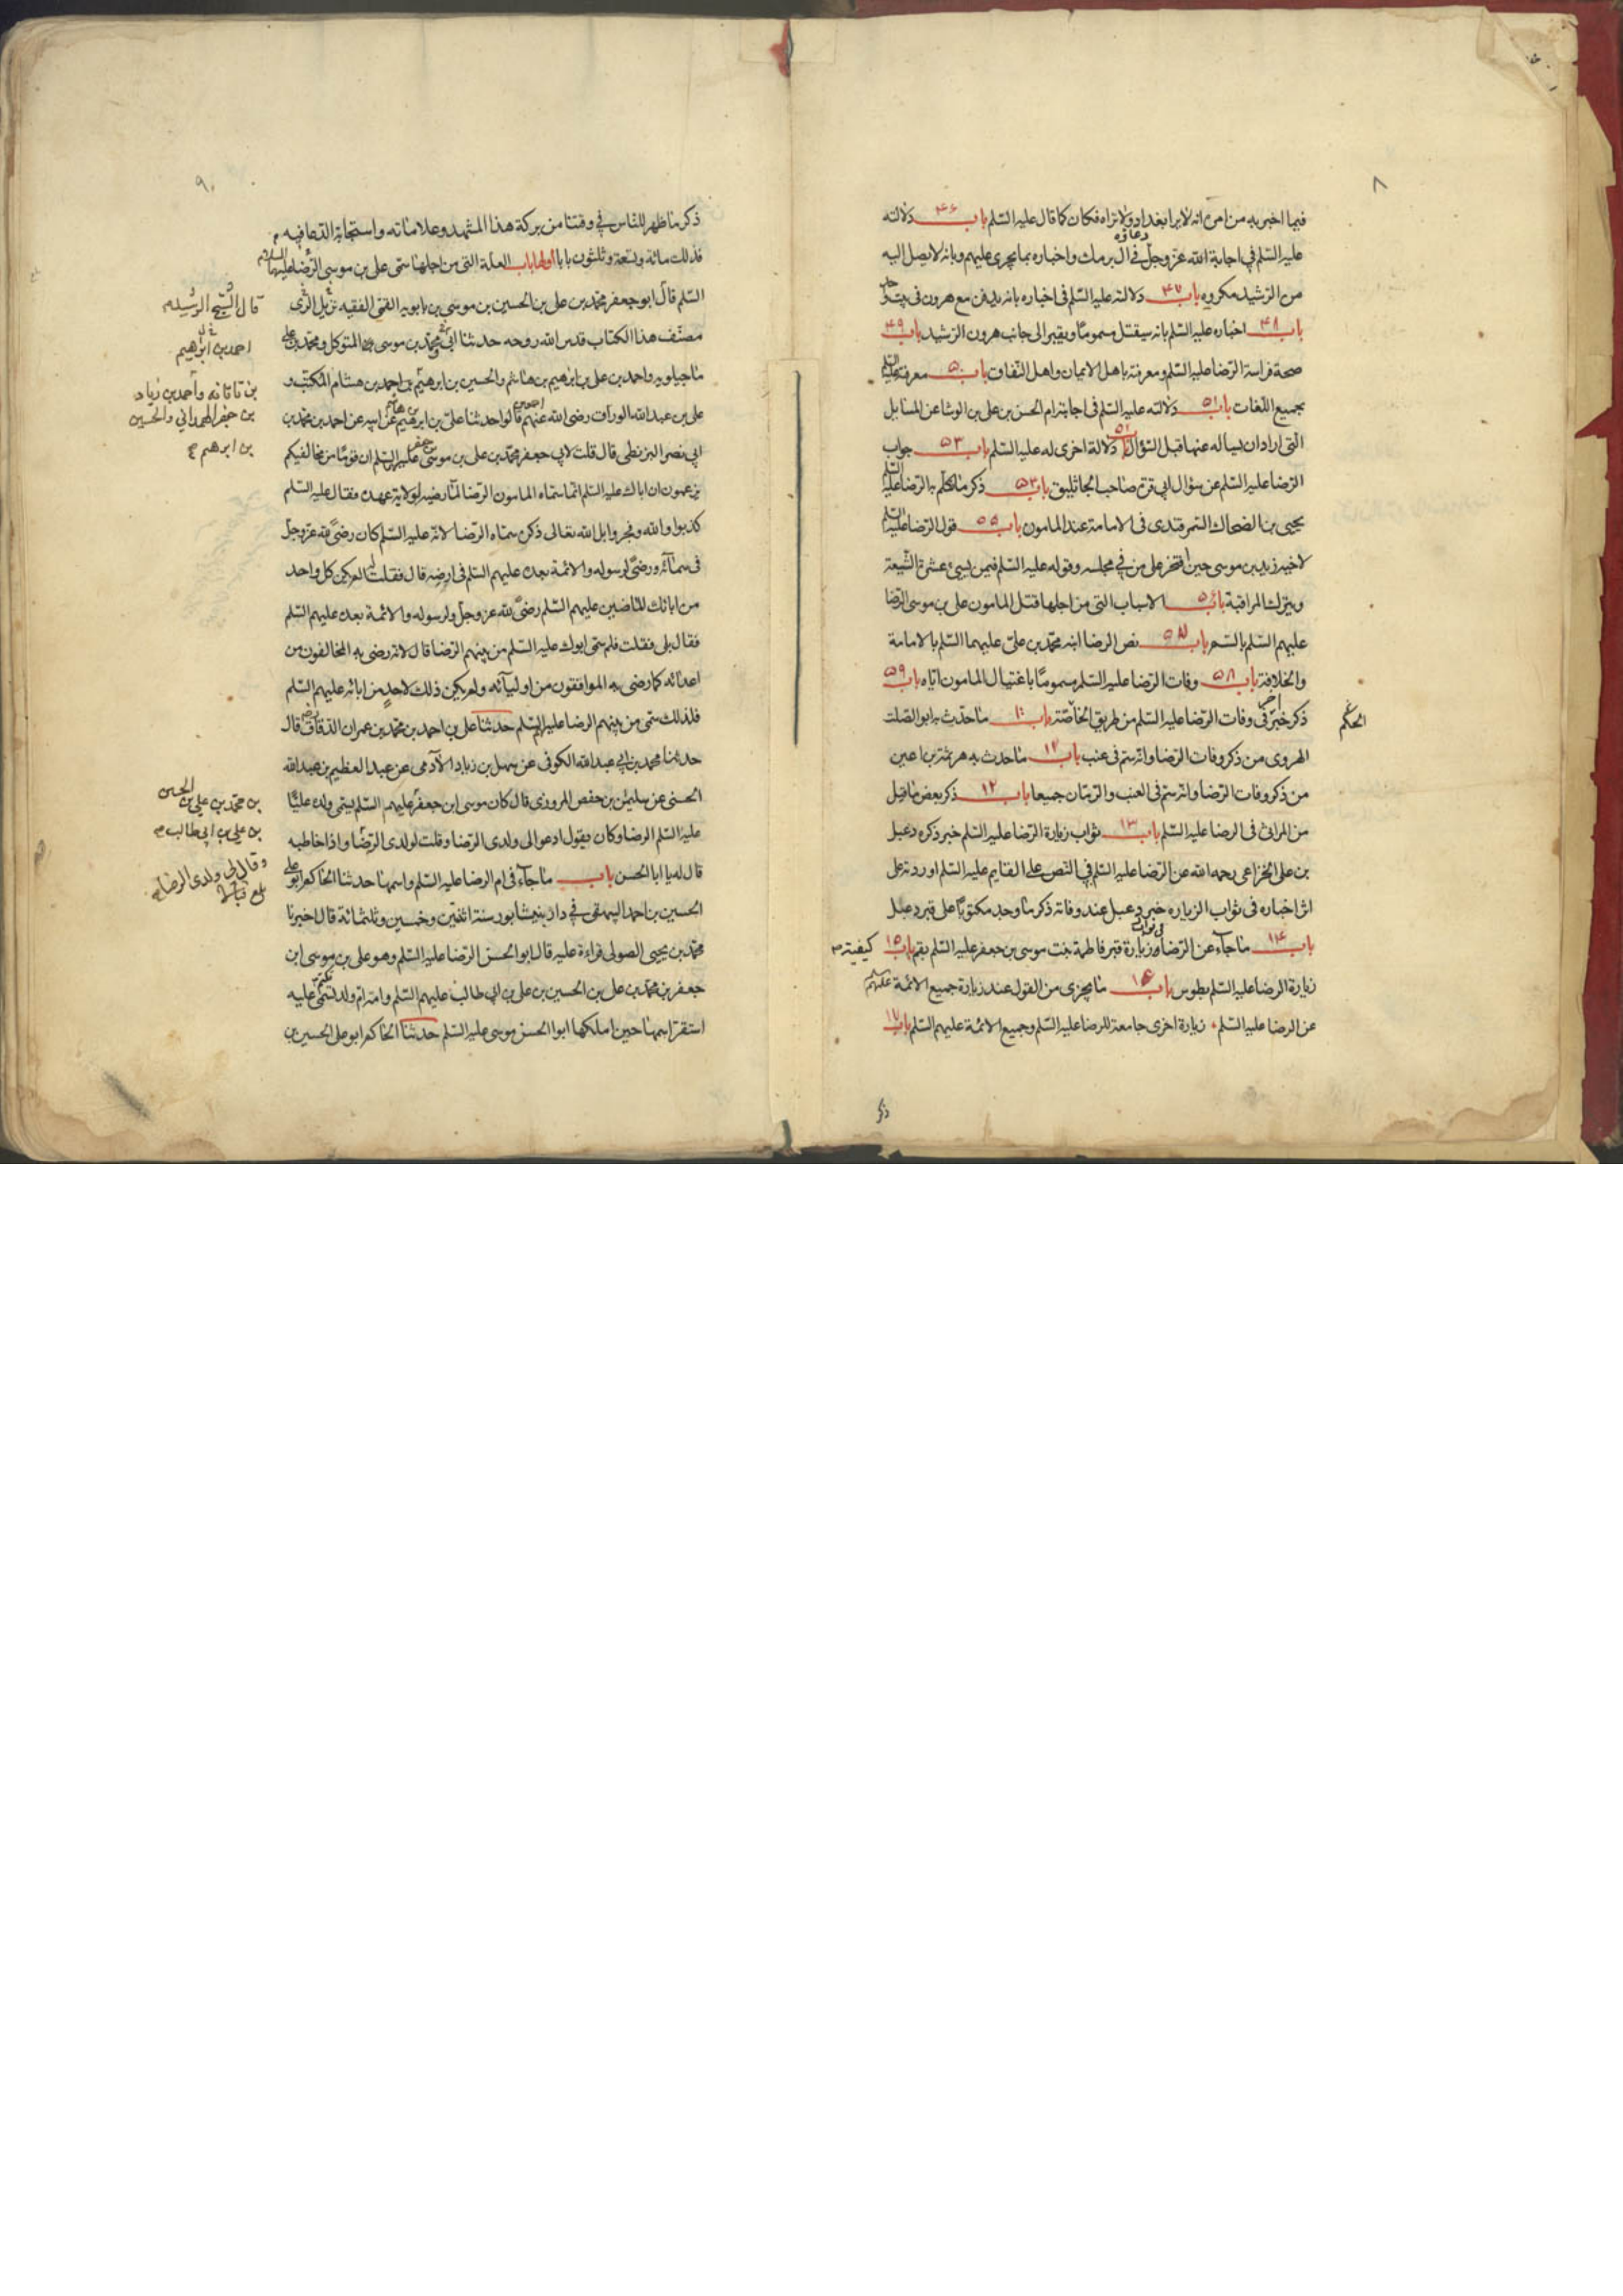 ٨
فيما اخبر به من امره انه لا يرا بغداد ولا تراه فكان كما قال عليه السّلم باب ٤٦ دلالته
عليه السّلم في اجابة الله عزّ وجلّ دعاؤه في ال برمك واخباره بما يجرى عليهم وبانه لا يصل اليه
من الرّشيد مكروه باب ٤٧ دلالته عليه السّلم في اخباره بانه يدفن مع هرون في بيت
باب ٤٨ اخباره عليه السّلم بانه سيقتل مسموما ويقبر الى جانب هرون الرّشيد باب ٤٩
صحة فراسة الرّضا عليه السّلم ومعرفته باهل الايمان واهل النّفاق باب ٥٠ معرفته عليه السّلم
بجميع اللّغات باب ٥١ دلالته عليه السّلم في اجابته الحسن بن على بن الوشا عن المسايل
التى اراد ان يساله عنها قبل السّؤال باب ٥٢ دلالة اخرى له عليه السّلم باب ٥٣ جواب
الرّضا عليه السّلم عن سؤال ابى قرّة صاحب الجاثليق باب ٥٤ ذكر ما كلّم به الرّضا عليه السّلم
يحيى بن الضحاك السّمرقندى في الامامة عند المامون باب ٥٥ قول الرّضا عليه السّلم
لاخيه زيد بن موسى حين افتخر على من في مجلسه وقوله عليه السّلم فيمن يسيء عشرة الشّيعة
ويترك المراقبة باب ٥٦ الاسباب التى من اجلها قتل المامون على بن موسى الرّضا
عليهم السّلم بالسّم باب ٥٧ نص الرضا ابنه محمّد بن علىّ عليهما السّلم بالامامة
والخلافة باب ٥٨ وفات الرّضا عليه السّلم مسموما باغتيال المامون ايّاه باب ٥٩
ذكر خبر اخر في وفات الرّضا عليه السّلم من طريق الخاصّة باب ٦٠ ما حدّث به ابو الصّلت
الهروى من ذكر وفات الرّضا وانه سمّ في عنب باب ٦١ ما حدث به هرثمة بن اعين
من ذكر وفات الرّضا وانه سمّ في العنب والرّمان جميعا باب ٦٢ ذكر بعض ما قيل
من المراثي في الرضا عليه السّلم باب ٦٣ ثواب زيارة الرّضا عليه السّلم خبر ذكره دعبل
بن على الخزاعى رحمه الله عن الرّضا عليه السّلم في النّص على القايم عليه السّلم اوردته على
اثر اخباره في ثواب الزياره خبر دعبل عند وفاته ذكر ما وجد مكتوبًا على قبر دعبل
باب ٦٤ ما جآء عن الرّضا في ثواب زيارة قبر فاطمة بنت موسى بن جعفر عليه السّلم بقم باب ٦٥ كيفيته
زيارة الرضا عليه السّلم بطوس باب ٦٦ ما يجزى من القول عند زيارة جميع الائمة عليهم
عن الرضا عليه السّلم زيارة اخرى جامعة للرضا عليه السّلم وجميع الائمّة عليهم السّلم باب ٦٧
ذكر
٩
ذكر ما ظهر للنّاس في وقتنا من بركة هذا المشهد وعلاماته واستجابة الدّعا فيه
فذلك مائة وتسعة وثلثون بابا اولها باب العلّة التى من اجلها سمّى على بن موسى الرّضا عليهما
السّلم قال ابو جعفر محمّد بن على بن الحسين بن موسى بن بابويه القمّى الفقيه نزيل الرّى
مصنّف هذا الكتاب قدس الله روحه حدثنا ابى ومحمّد بن موسى بن المتوكل ومحمّد بن على
ماجيلويه واحمد بن على بن ابرهيم بن هاشم والحسين بن ابرهيم بن احمد بن هشام المكتّب و
على بن عبد الله الورّاق رضى الله عنهم اجمعين قالوا حدثنا علىّ بن ابرهيم بن هاشم عن ابيه عن احمد بن محمّد بن
ابى نصر البزنطى قال قلت لابى جعفر محمّد بن على بن موسى عليهم السّلم ان قومًا من مخالفيكم
يزعمون ان اباك عليه السّلم انّما سمّاه المامون الرّضا لمّا رضيه لولاية عهده فقال عليه السّلم
كذبوا والله وفجروا بل الله تعالى ذكره سمّاه الرّضا لانّه عليه السّلم كان رضىً لله عزّ وجلّ
فى سمآئه ورضىً لرسوله والائمة بعده عليهم السّلم في ارضه قال فقلت له الم يكن كل واحد
من ابائك الماضين عليهم السّلم رضىً لله عزّ وجلّ ولرسوله والائمة بعده عليهم السّلم
فقال بلى فقلت فلم سمّى ابوك عليه السّلم من بينهم الرّضا قال لانه رضى به المخالفون من
اعدائه كما رضى به الموافقون من اوليآئه ولم يكن ذلك لاحد من ابائه عليهم السّلم
فلذلك سمّى من بينهم الرضا عليه السّلم حدثنا على بن احمد بن محمّد بن عمران الدقاق قال
حدثنا محمد بن ابى عبد الله الكوفى عن سهل بن زياد الآدمى عن عبد العظيم بن عبد الله
الحسنى عن سليمن بن حفص المروزى قال كان موسى ابن جعفر عليهم السّلم يسمّى ولده عليًّا
عليه السّلم الرضا وكان يقول ادعوا لى ولدى الرّضا وقلت لولدى الرّضا واذا خاطبه
قال له يا ابا الحسن باب ما جآء في ام الرضا عليه السّلم واسمها حدثنا الحاكم ابو على
الحسين بن احمد البيهقى في داره بنيشابور سنة اثنتين وخمسين وثلثمائة قال اخبرنا
محمّد بن يحيى الصولى قراءة عليه قال ابو الحسن الرّضا عليه السّلم وهو على بن موسى ابن
جعفر بن محمّد بن على بن الحسين بن على بن ابى طالب عليهم السّلم وامّه ام ولد تسمّى تكتم عليه
استقرّ اسمها حين املكها ابو الحسن موسى عليه السّلم حدثنا الحاكم ابو على الحسين بن
قال الشيخ
احمد بن ابرهيم
بن تاتانه واحمد بن زياد
بن جعفر الهمدانى والحسين
بن ابرهيم
بن محمّد بن على بن الحسن
بن على بن ابى طالب
وقال لى ولدى الرضا